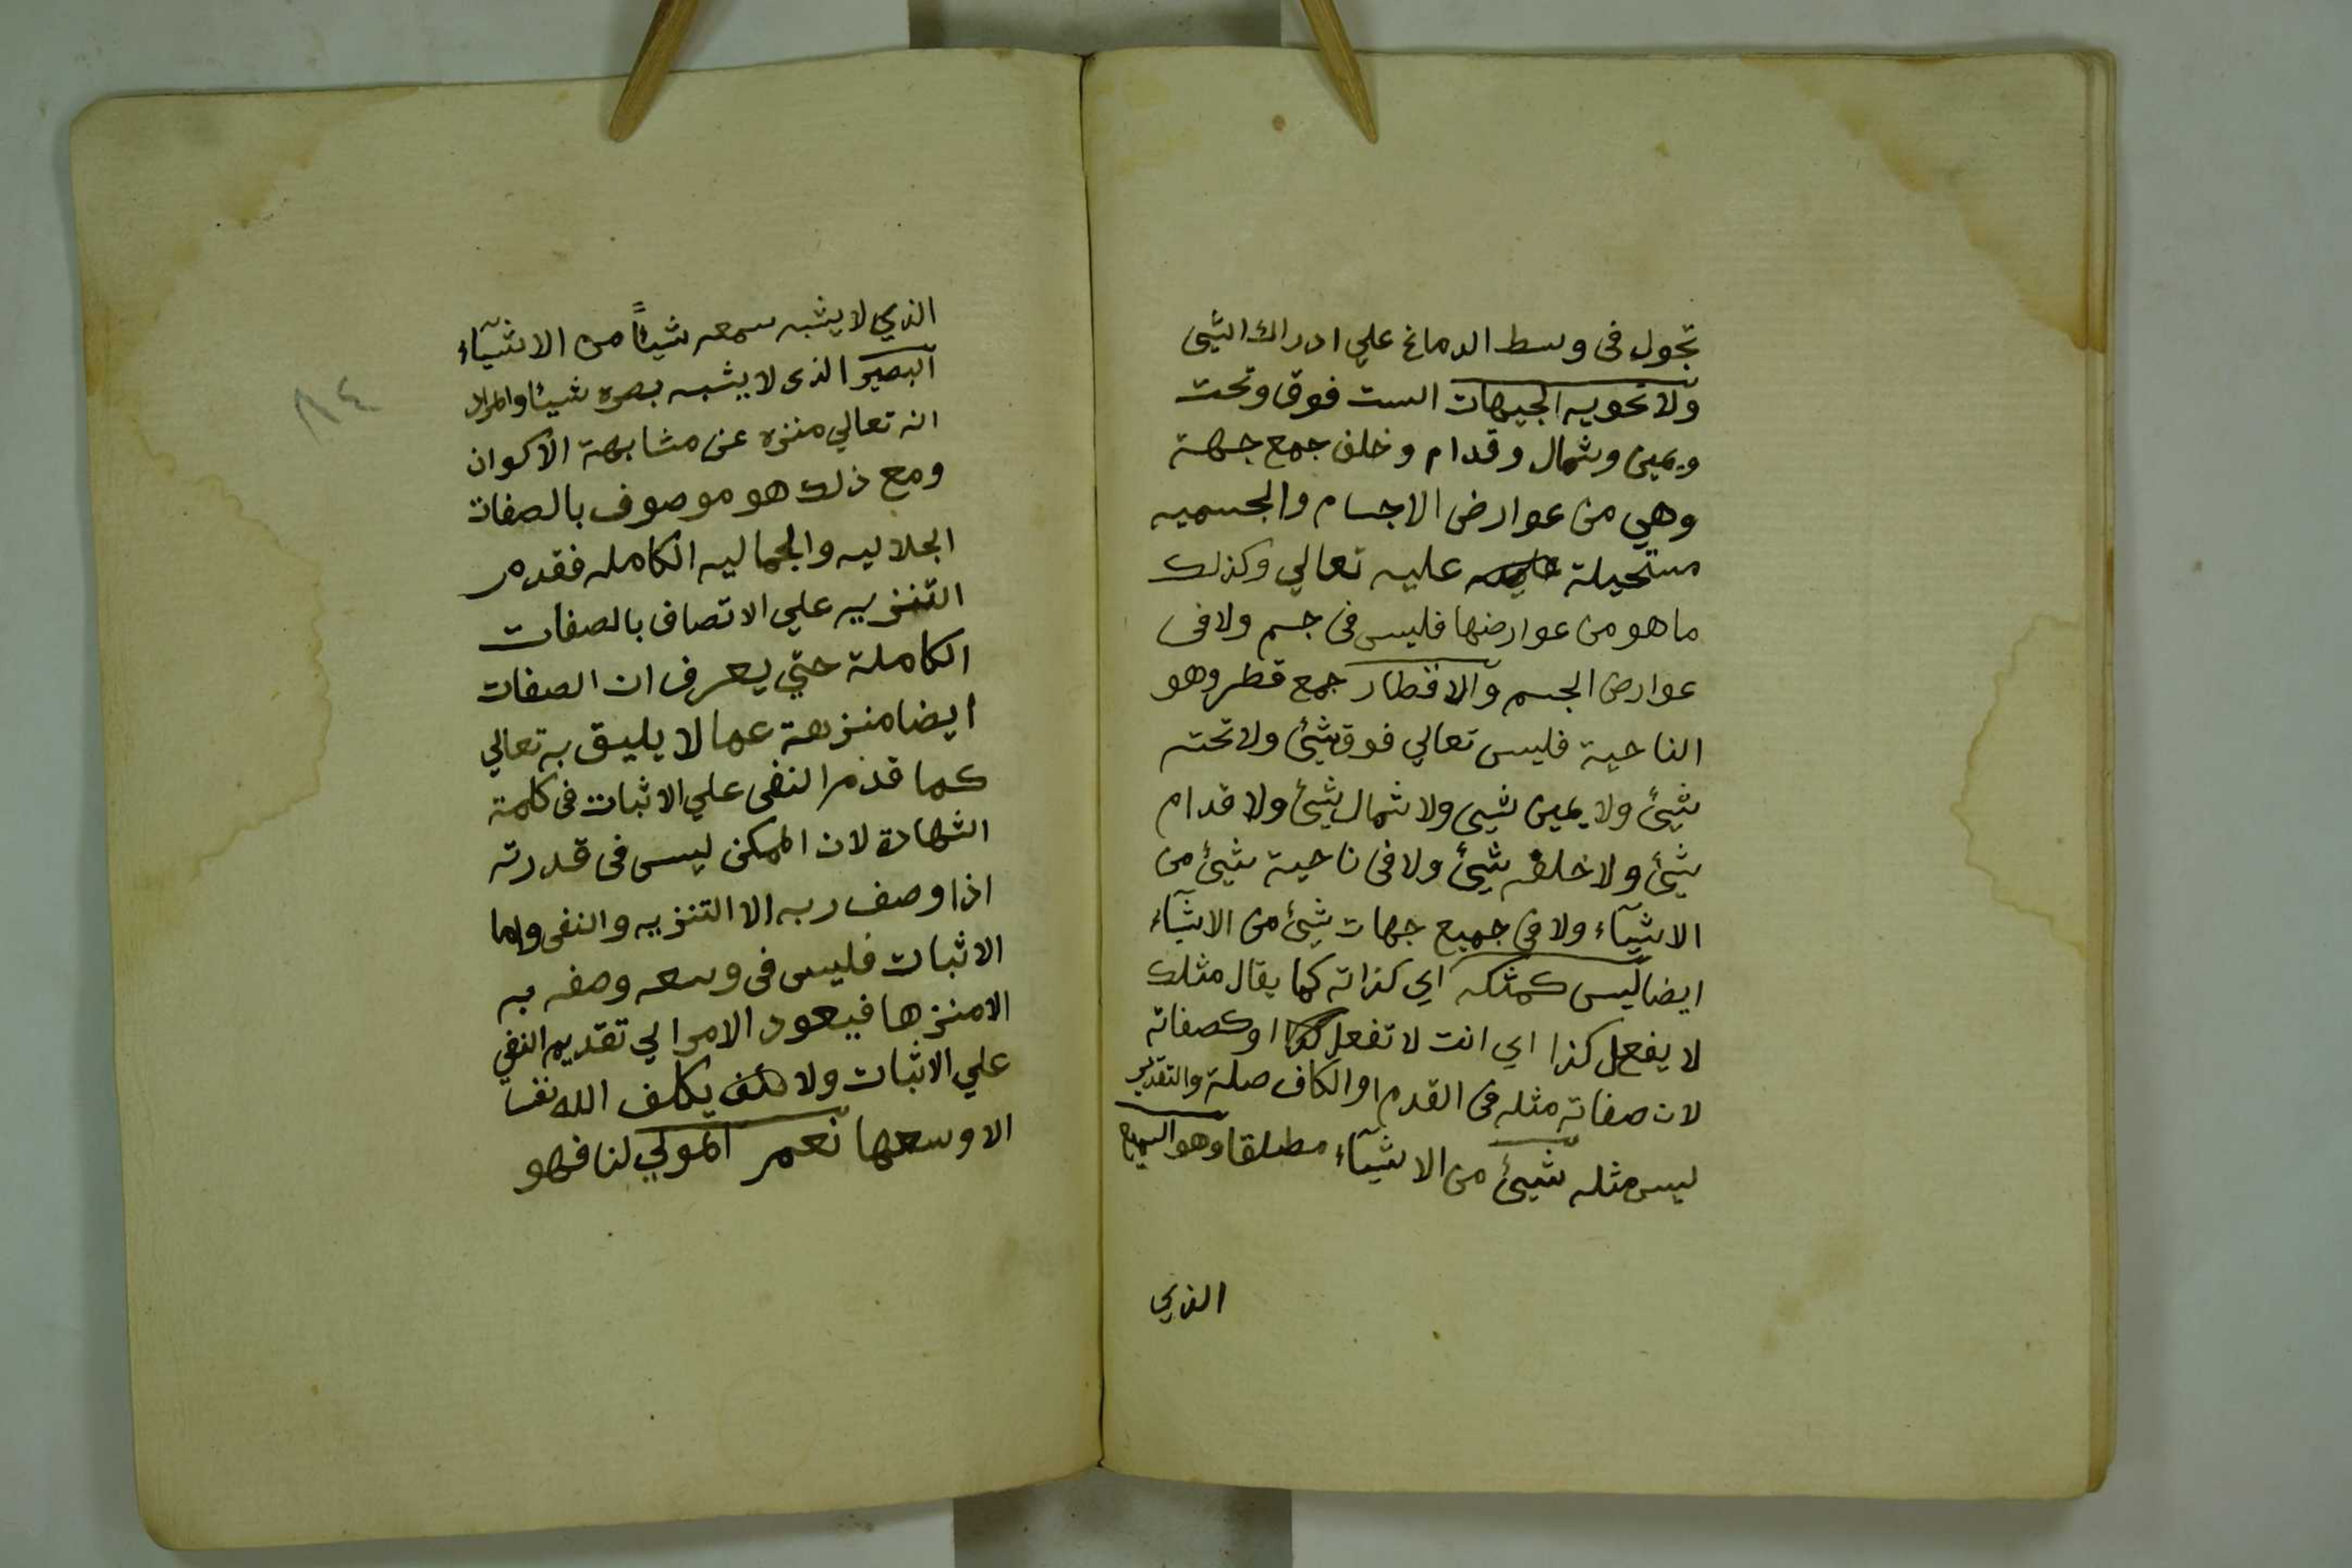 تجول فى وسط الدماغ علي ادراك الشئ
ولا تحويه الجيهات الست فوق وتحت
ويمين وشمال وقدام وخلف جمع جهة
وهي من عوارض الاجسام والجسميه
مستحيلة عليه تعالي وكذلك
ماهو من عوارضها فليس فى جسم ولا فى
عوارض الجسم والاقطار جمع قطر وهو
الناحية فليس تعالي فوق شئ ولا تحته
شئ ولا يمين شي ولا شمال شئ ولا قدام
شئ ولا خلفه شئ ولا فى ناحية شئ من
الاشيآء ولا فى جميع جهات شئ من الاشيآء
ايضا ليس كمثله اي كذاته كما يقال مثلك
لا يفعل كذا اي انت لا تفعل كذا اوكصفاته
لان صفاته مثله فى القدم او الكاف صلة والتقدير
ليس مثله شئ من الاشيآء مطلقا وهو السميع
الذي
الذي لا يشبه سمعه شيئاً من الاشيآء
البصير الذى لا يشبه بصره شيئا والمراد
انه تعالي منزه عن مشابهة الاكوان
ومع ذلك هو موصوف بالصفات
الجلاليه والجماليه الكامله فقدم
التنزيه علي الاتصاف بالصفات
الكاملة حتي يعرف ان الصفات
ايضا منزهة عما لا يليق به تعالي
كما قدم النفى علي الاثبات فى كلمة
الشهادة لان الممكن ليس فى قدرته
اذا وصف ربه الا التنزيه والنفى واما
الاثبات فليس فى وسعه وصفه به
الا منزها فيعود الامر الي تقديم النفي
علي الاثبات ولا يكلف الله نفسا
الا وسعها نعم المولي لنا فهو
٨٤